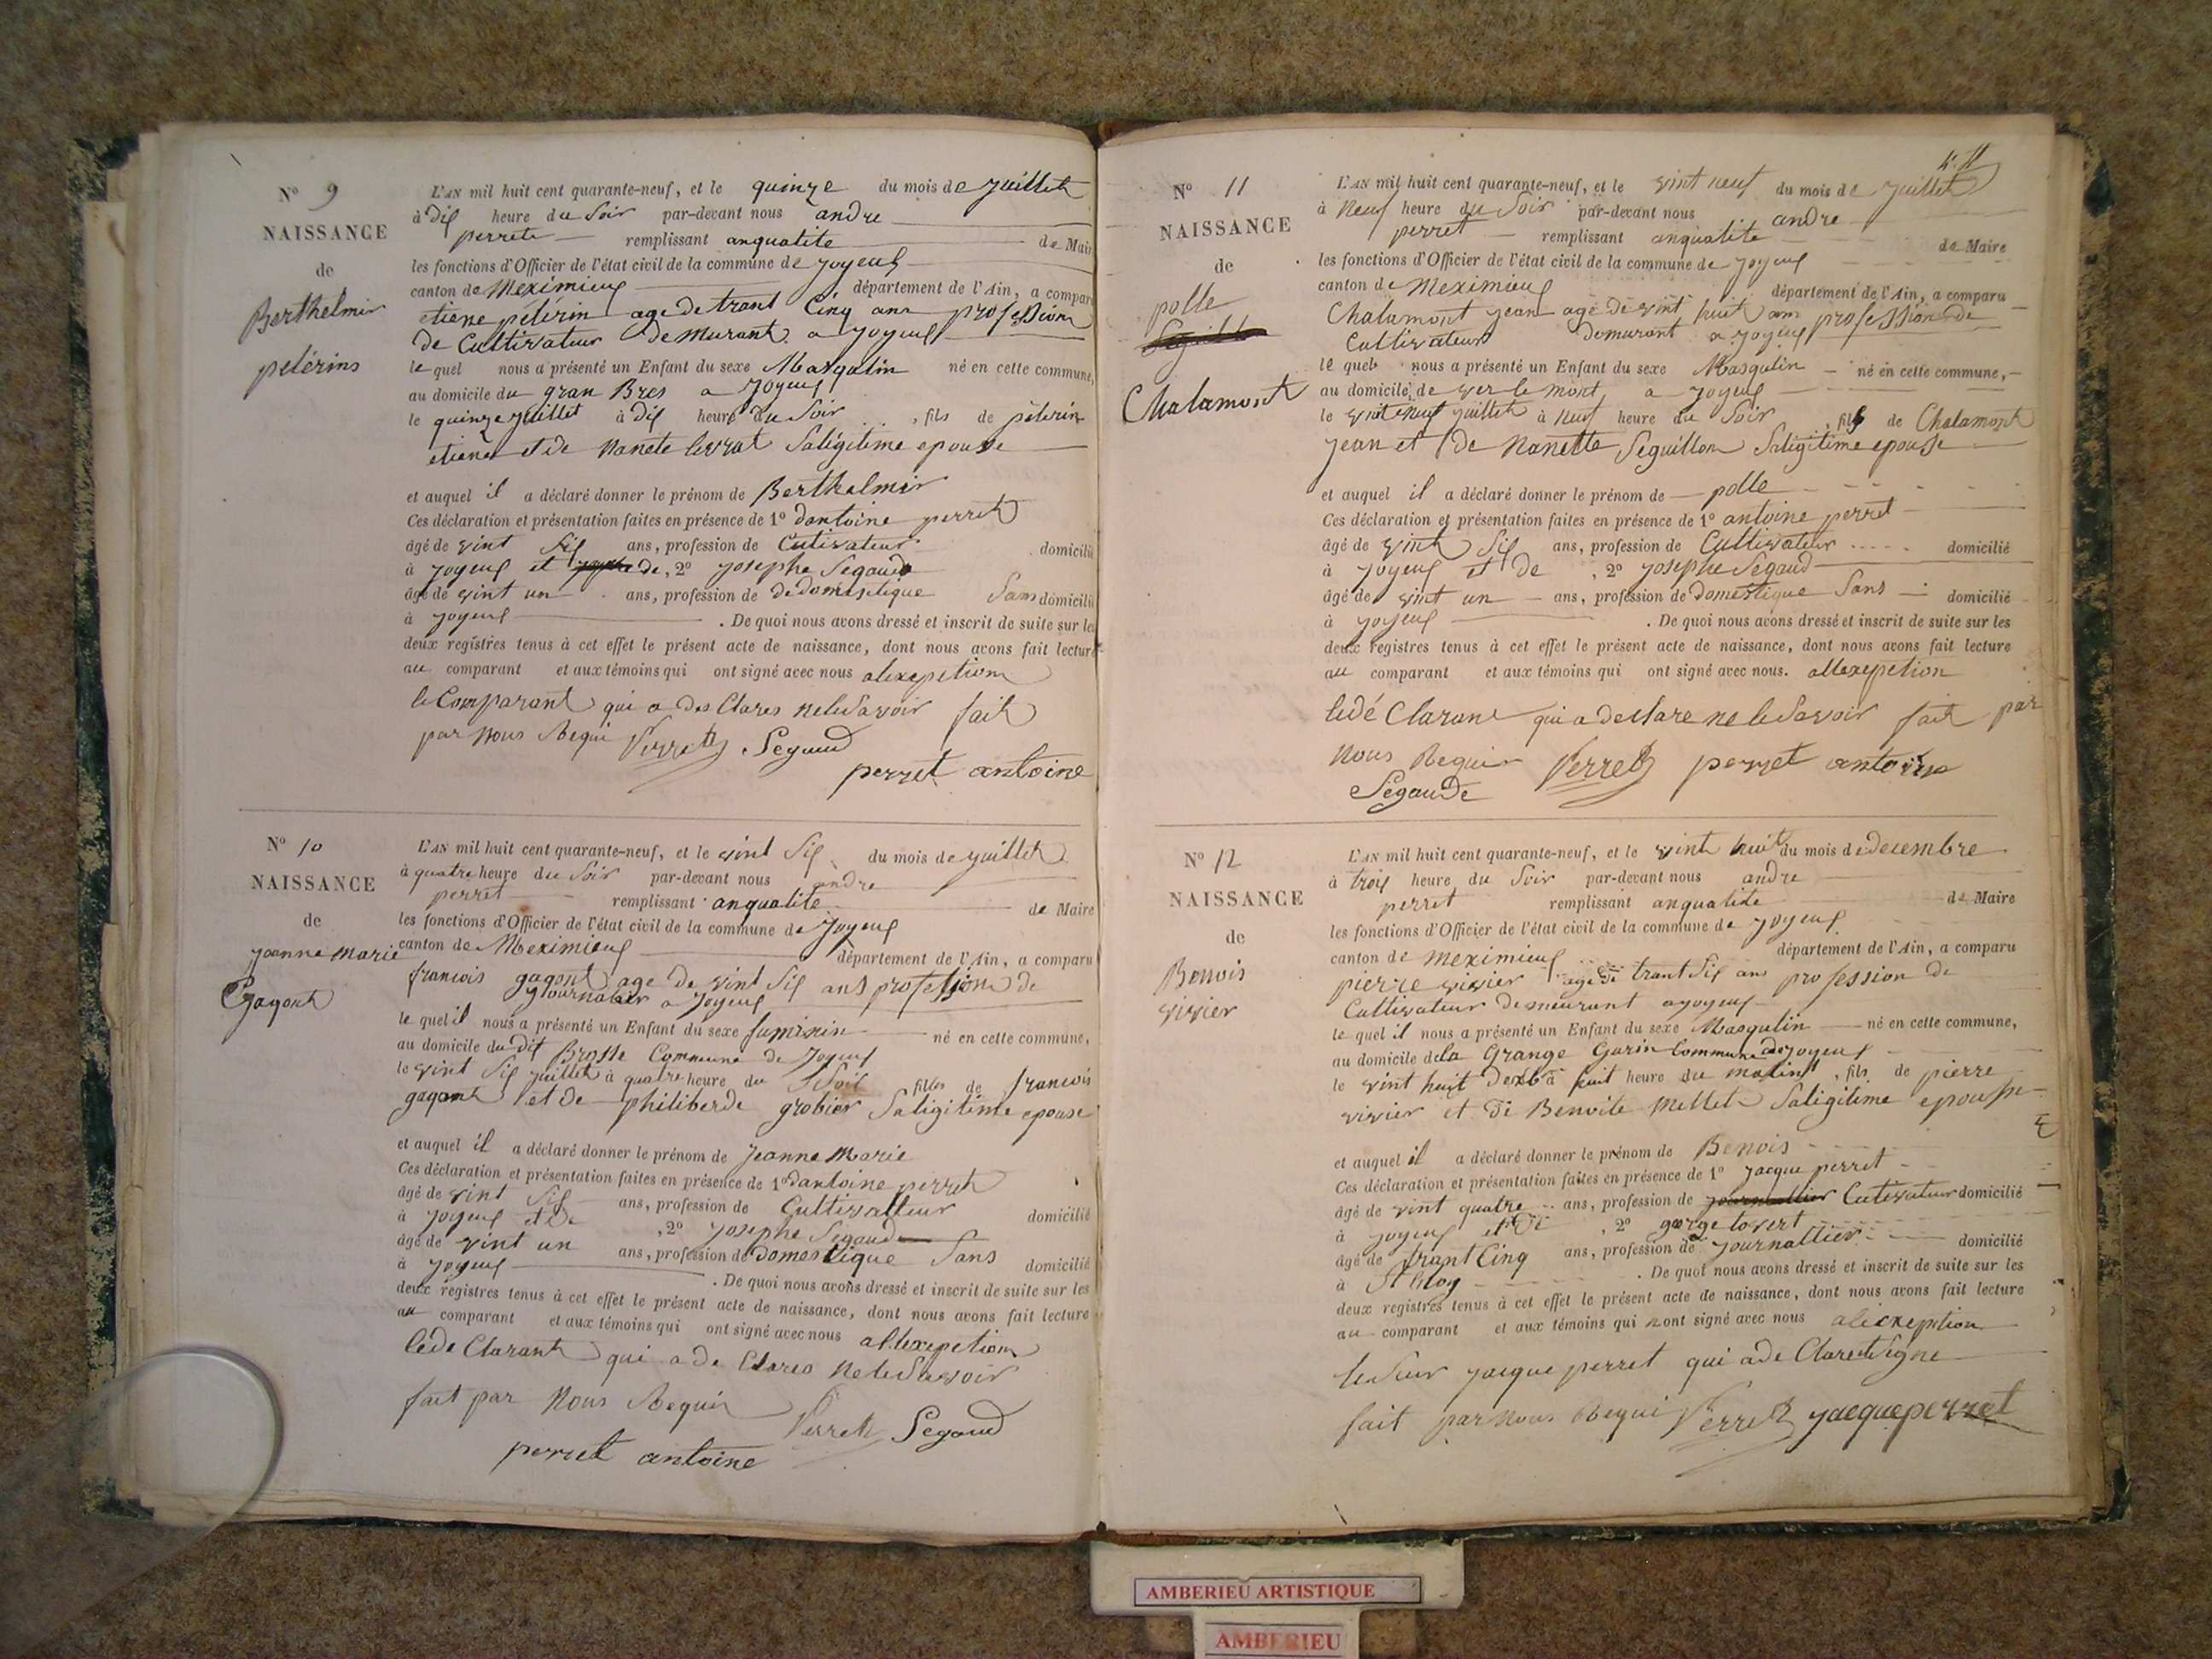 N° 9
NAISSANCE
de
Berthelmir
pelérins
L'AN mil huit cent quarante-neuf, et le quinze du mois de juillet
à dix heure du Soir par-devant nous andre
perrete remplissant anqualite de Maire
les fonctions d'Officier de l'état civil de la commune de joyeux
canton de Meximieux département de l'Ain, a comparu
etiene pelérin age de trant Cinq ans profession
de Cultivateur demurant a joyeux
le quel nous a présenté un Enfant du sexe Masqulin né en cette commune,
au domicile du gran Bres a joyeux
le quinze juillet à dix heure du Soir, fils de pélerin
etiene et de Nanete levrat Saligitime epouse
et auquel il a déclaré donner le prénom de Berthelmir
Ces déclaration et présentation faites en présence de 1° dantoine perret
âgé de vint six ans, profession de Cutivateur domicilié
à joyeux et de, 2° josephe Segaud
âgé de vint un ans, profession de dedomestique Sans domicilié
à joyeux . De quoi nous avons dressé et inscrit de suite sur les
deux registres tenus à cet effet le présent acte de naissance, dont nous avons fait lecture
au comparant et aux témoins qui ont signé avec nous alexepetion
le Comparant qui a des Clares nelesavoir fait
par nous Requi Perret Segaud
perret antoine
N° 10
NAISSANCE
de
jeanne marie
Gagont
L'AN mil huit cent quarante-neuf, et le vint Six du mois de juillet
à quatre heure du Soir par-devant nous andre
perret remplissant anqualite de Maire
les fonctions d'Officier de l'état civil de la commune de Joyeux
canton de Meximieux département de l'Ain, a comparu
francois gagont age de vint Six ans profession de
journalier a joyeux
le quel il nous a présenté un Enfant du sexe faminin né en cette commune,
au domicile du dit Brosse Commune de Joyeux
le vint Six juillet à quatre heure du Soir filles de francois
gagont et de philiberde grobier Saligitime epouse
et auquel il a déclaré donner le prénom de jeanne Marie
Ces déclaration et présentation faites en présence de 1° dantoine perret
âgé de vint Six ans, profession de Cultivatteur domicilié
à joyeux et de, 2° josephe Segaud
âgé de vint un ans, profession de Domestique Sans domicilié
à joyeux . De quoi nous avons dressé et inscrit de suite sur les
deux registres tenus à cet effet le présent acte de naissance, dont nous avons fait lecture
au comparant et aux témoins qui ont signé avec nous allexepetion
lede Clarant qui a de Clares nelesavoir
fait par Nous Requir Perret Segaud
perret antoine
N° 11
NAISSANCE
de
polle
Chalamont
L'AN mil huit cent quarante-neuf, et le vint neuf du mois de juillet
à Neuf heure du Soir par-devant nous andre
perret remplissant anqualite de Maire
les fonctions d'Officier de l'état civil de la commune de joyeux
canton de Meximieux département de l'Ain, a comparu
Chalamont jean age de vint huit ans profession de
Cultivateur demurant a joyeux
le quel nous a présenté un Enfant du sexe Masqulin né en cette commune,
au domicile de ver le mont a joyeux
le vinteneuf juillet à neuf heure du Soir, fils de Chalamont
jean et de Nanette Seguillon Saligitime epouse
et auquel il a déclaré donner le prénom de polle
Ces déclaration et présentation faites en présence de 1° antoine perret
âgé de vint Six ans, profession de Cultivateur domicilié
à joyeux et de, 2° josephe Segaud
âgé de vint un ans, profession de domestique Sans domicilié
à joyeux . De quoi nous avons dressé et inscrit de suite sur les
deux registres tenus à cet effet le présent acte de naissance, dont nous avons fait lecture
au comparant et aux témoins qui ont signé avec nous. allexepetion
ledé Clarant qui a declare ne le Savoir fait par
Nous Requir Perret perret antoine
Segaude
N° 12
NAISSANCE
de
Benois
vivier
L'AN mil huit cent quarante-neuf, et le vint huit du mois de decembre
à trois heure du Soir par-devant nous andre
perret remplissant anqualite de Maire
les fonctions d'Officier de l'état civil de la commune de joyeux
canton de meximieux département de l'Ain, a comparu
pierre vivier age de trant Six ans profession de
Cultivateur demeurant a joyeux
le quel il nous a présenté un Enfant du sexe Masqulin né en cette commune,
au domicile dela Grange Garin Commune de joyeux
le vint huit à huit heure du matin, fils de pierre
vivier et de Benoite Mettet Saligitime epouse
et auquel il a déclaré donner le prénom de Benois
Ces déclaration et présentation faites en présence de 1° jacque perret
âgé de vint quatre ans, profession de Cutivateur domicilié
à joyeux et de, 2° gorge tovert
âgé de trant Cinq ans, profession de journallier domicilié
à St Eloy . De quoi nous avons dressé et inscrit de suite sur les
deux registres tenus à cet effet le présent acte de naissance, dont nous avons fait lecture
au comparant et aux témoins qui nont signé avec nous alicxeption
jacque perret qui ade Clare
fait par Nous Requi Perret jacque perret
AMBERIEU ARTISTIQUE
AMBERIEU